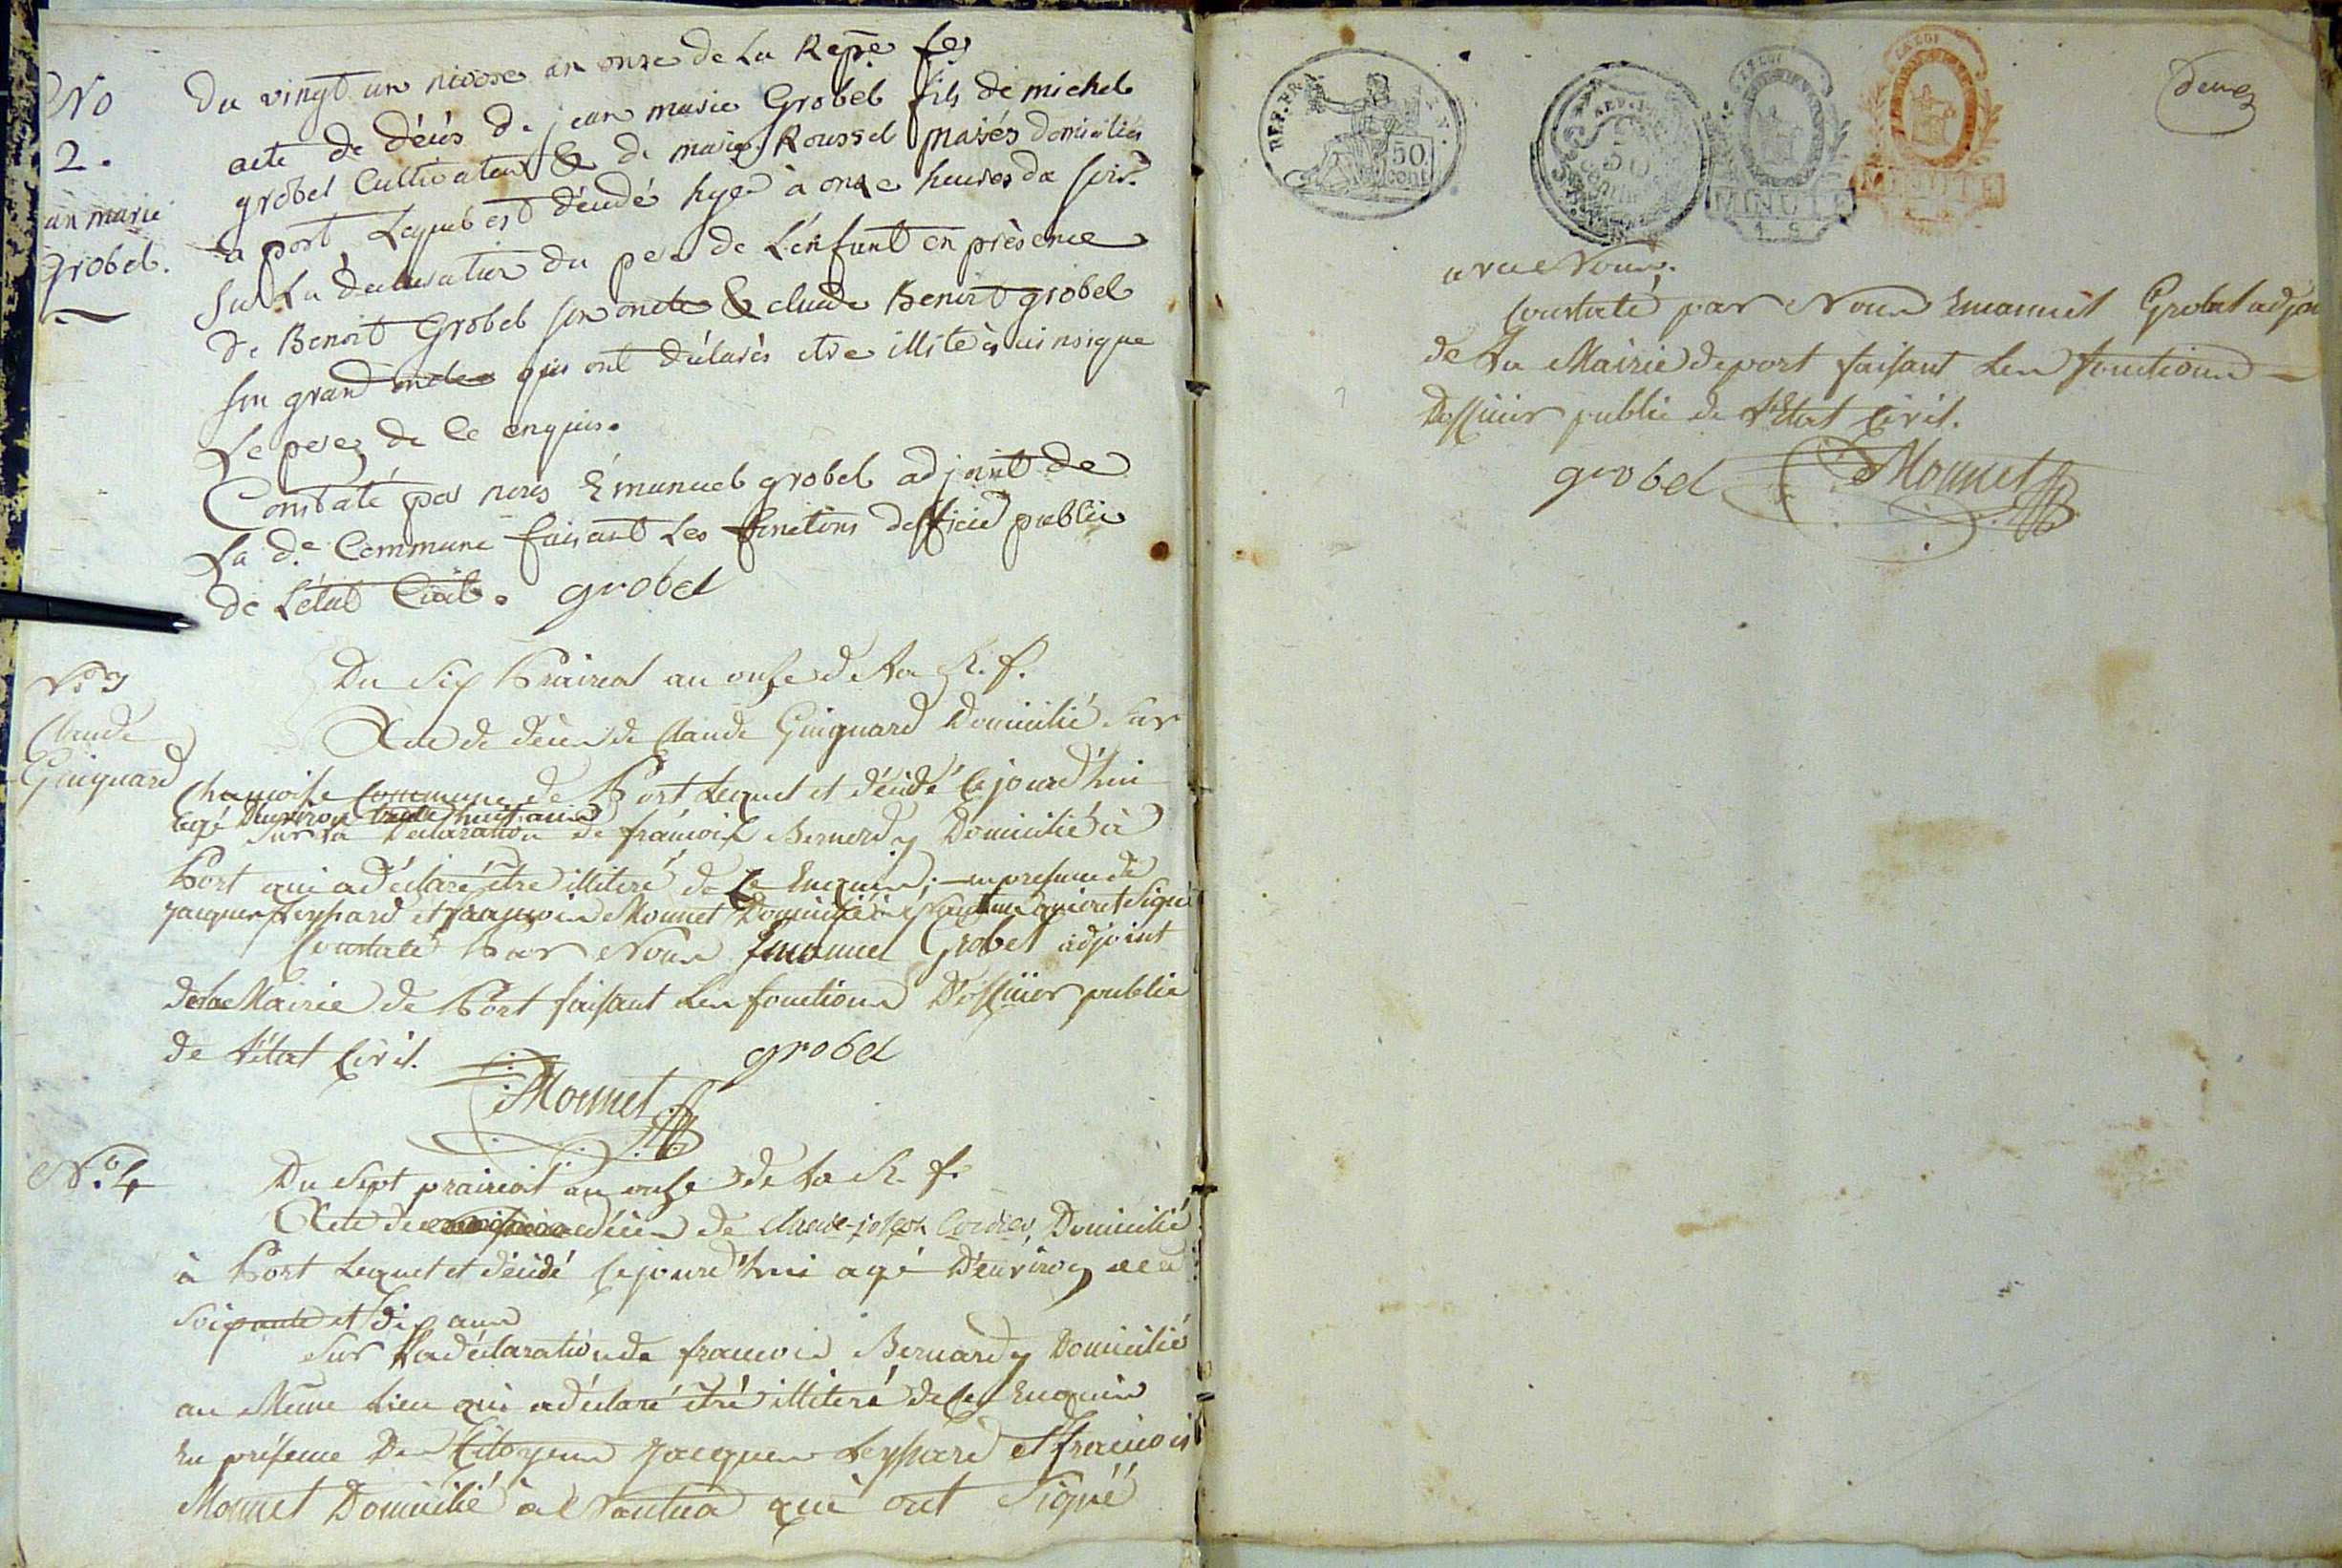 No
2.
an marie
Grobel.
Du vingt un nivose an onze de La Repe. fse
acte de décès de jean marie Grobel fils de michel
grobel Cultivateur & de marie Roussel mariés domiciliés
a port Lequel est décudé hyer à onze heures du soir.
Sur La déclaration du pere de L'enfant en présence
de Benoit Grobel son oncle & claude Benoit grobel
son grand oncle qui ont déclarés etre illitérés ainsi que
Le pere de Ce enquis.
Constaté par nous Emanuel grobel adjoint de
La de. Commune faisant Les fonctions dofficier public
de L'état Civil. grobel
No 3
Claude
Guignard
Du Six Prairial an onze de La R. f.
Acte de décès de Claude Guignard Domicilié Sur
Chamoise Commune de Port Lequel et décédé Cejourd'hui
agé D'environ trente huit ans
Sur La Déclaration de françois Bernardy Domicilié à
Port qui a déclaré être illiteré de Ce Enquis; en presence de
Jacques Leyssard et françois Monnet Domicilié à Nantua qui ont Signé
Constaté Par Nous Emanuel Grobel adjoint
de La Mairie de Port faisant Les fonctions D'officier public
de L'état Civil.
grobel
Monnet
No. 4
Du Sept prairial an onze de La R. f.
Acte de décès de Claude-joseph Cordier, Domicilié
à Port Lequel et décédé Cejourd'hui agé D'environ
Soixante et Dix ans
Sur La déclaration de françois Bernardy Domicilié
au Même Lieu qui a déclaré être illiteré de Ce Enquis
En présence Des Citoyens Jacques Leyssard et françois
Monnet Domicilié à Nantua qui ont Signé
REP. FRA
50
cent
50
LA LOI
MINUTE
LA LOI
MINUTE
Deux
avec Nous.
Constaté par Nous Emanuel Grobel adjoin
de La Mairie de port faisant Les fonctions
Dofficier public de L'Etat Civil.
grobel Monnet